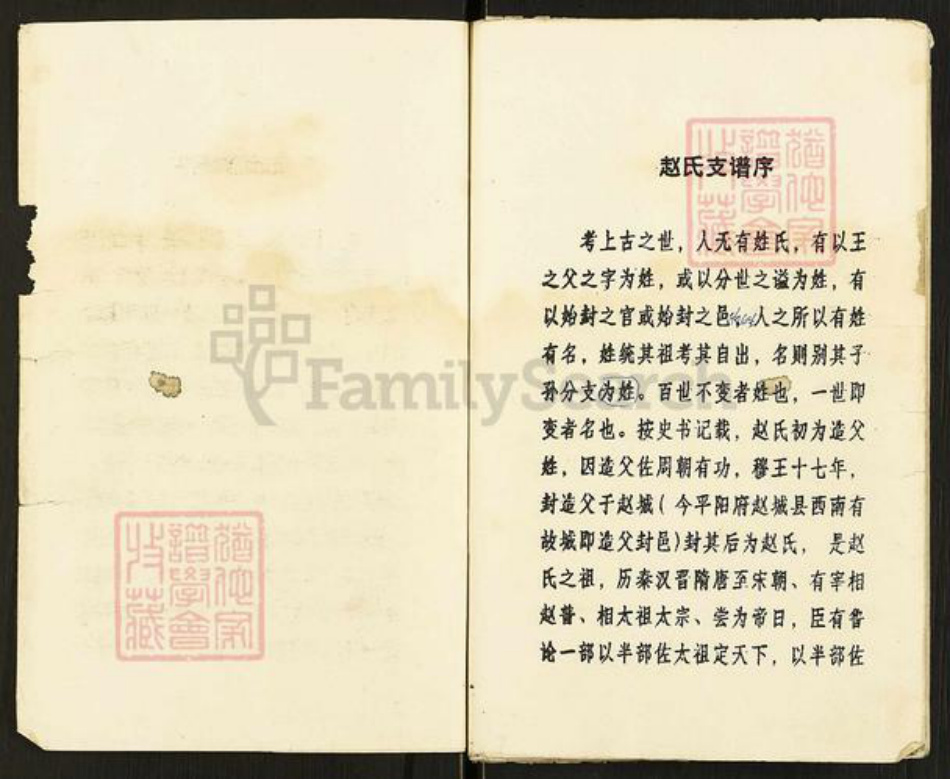 赵氏支谱序
考上古之世，人无有姓氏，有以王
之父之字为姓，或以分世之谥为姓，有
以始封之官或始封之邑人之所以有姓
有名，姓统其祖考其自出，名则别其子
孙分支为姓。百世不变者姓也，一世即
变者名也。按史书记载，赵氏初为造父
姓，因造父佐周朝有功，穆王十七年，
封造父于赵城(今平阳府赵城县西南有
故城即造父封邑)封其后为赵氏，是赵
氏之祖，历秦汉晋隋唐至宋朝、有宰相
赵普、相太祖太宗、尝为帝日，臣有鲁
论一部以半部佐太祖定天下，以半部佐
猶他家
譜學會
收藏
猶他家
譜學會
收藏
FamilySearch